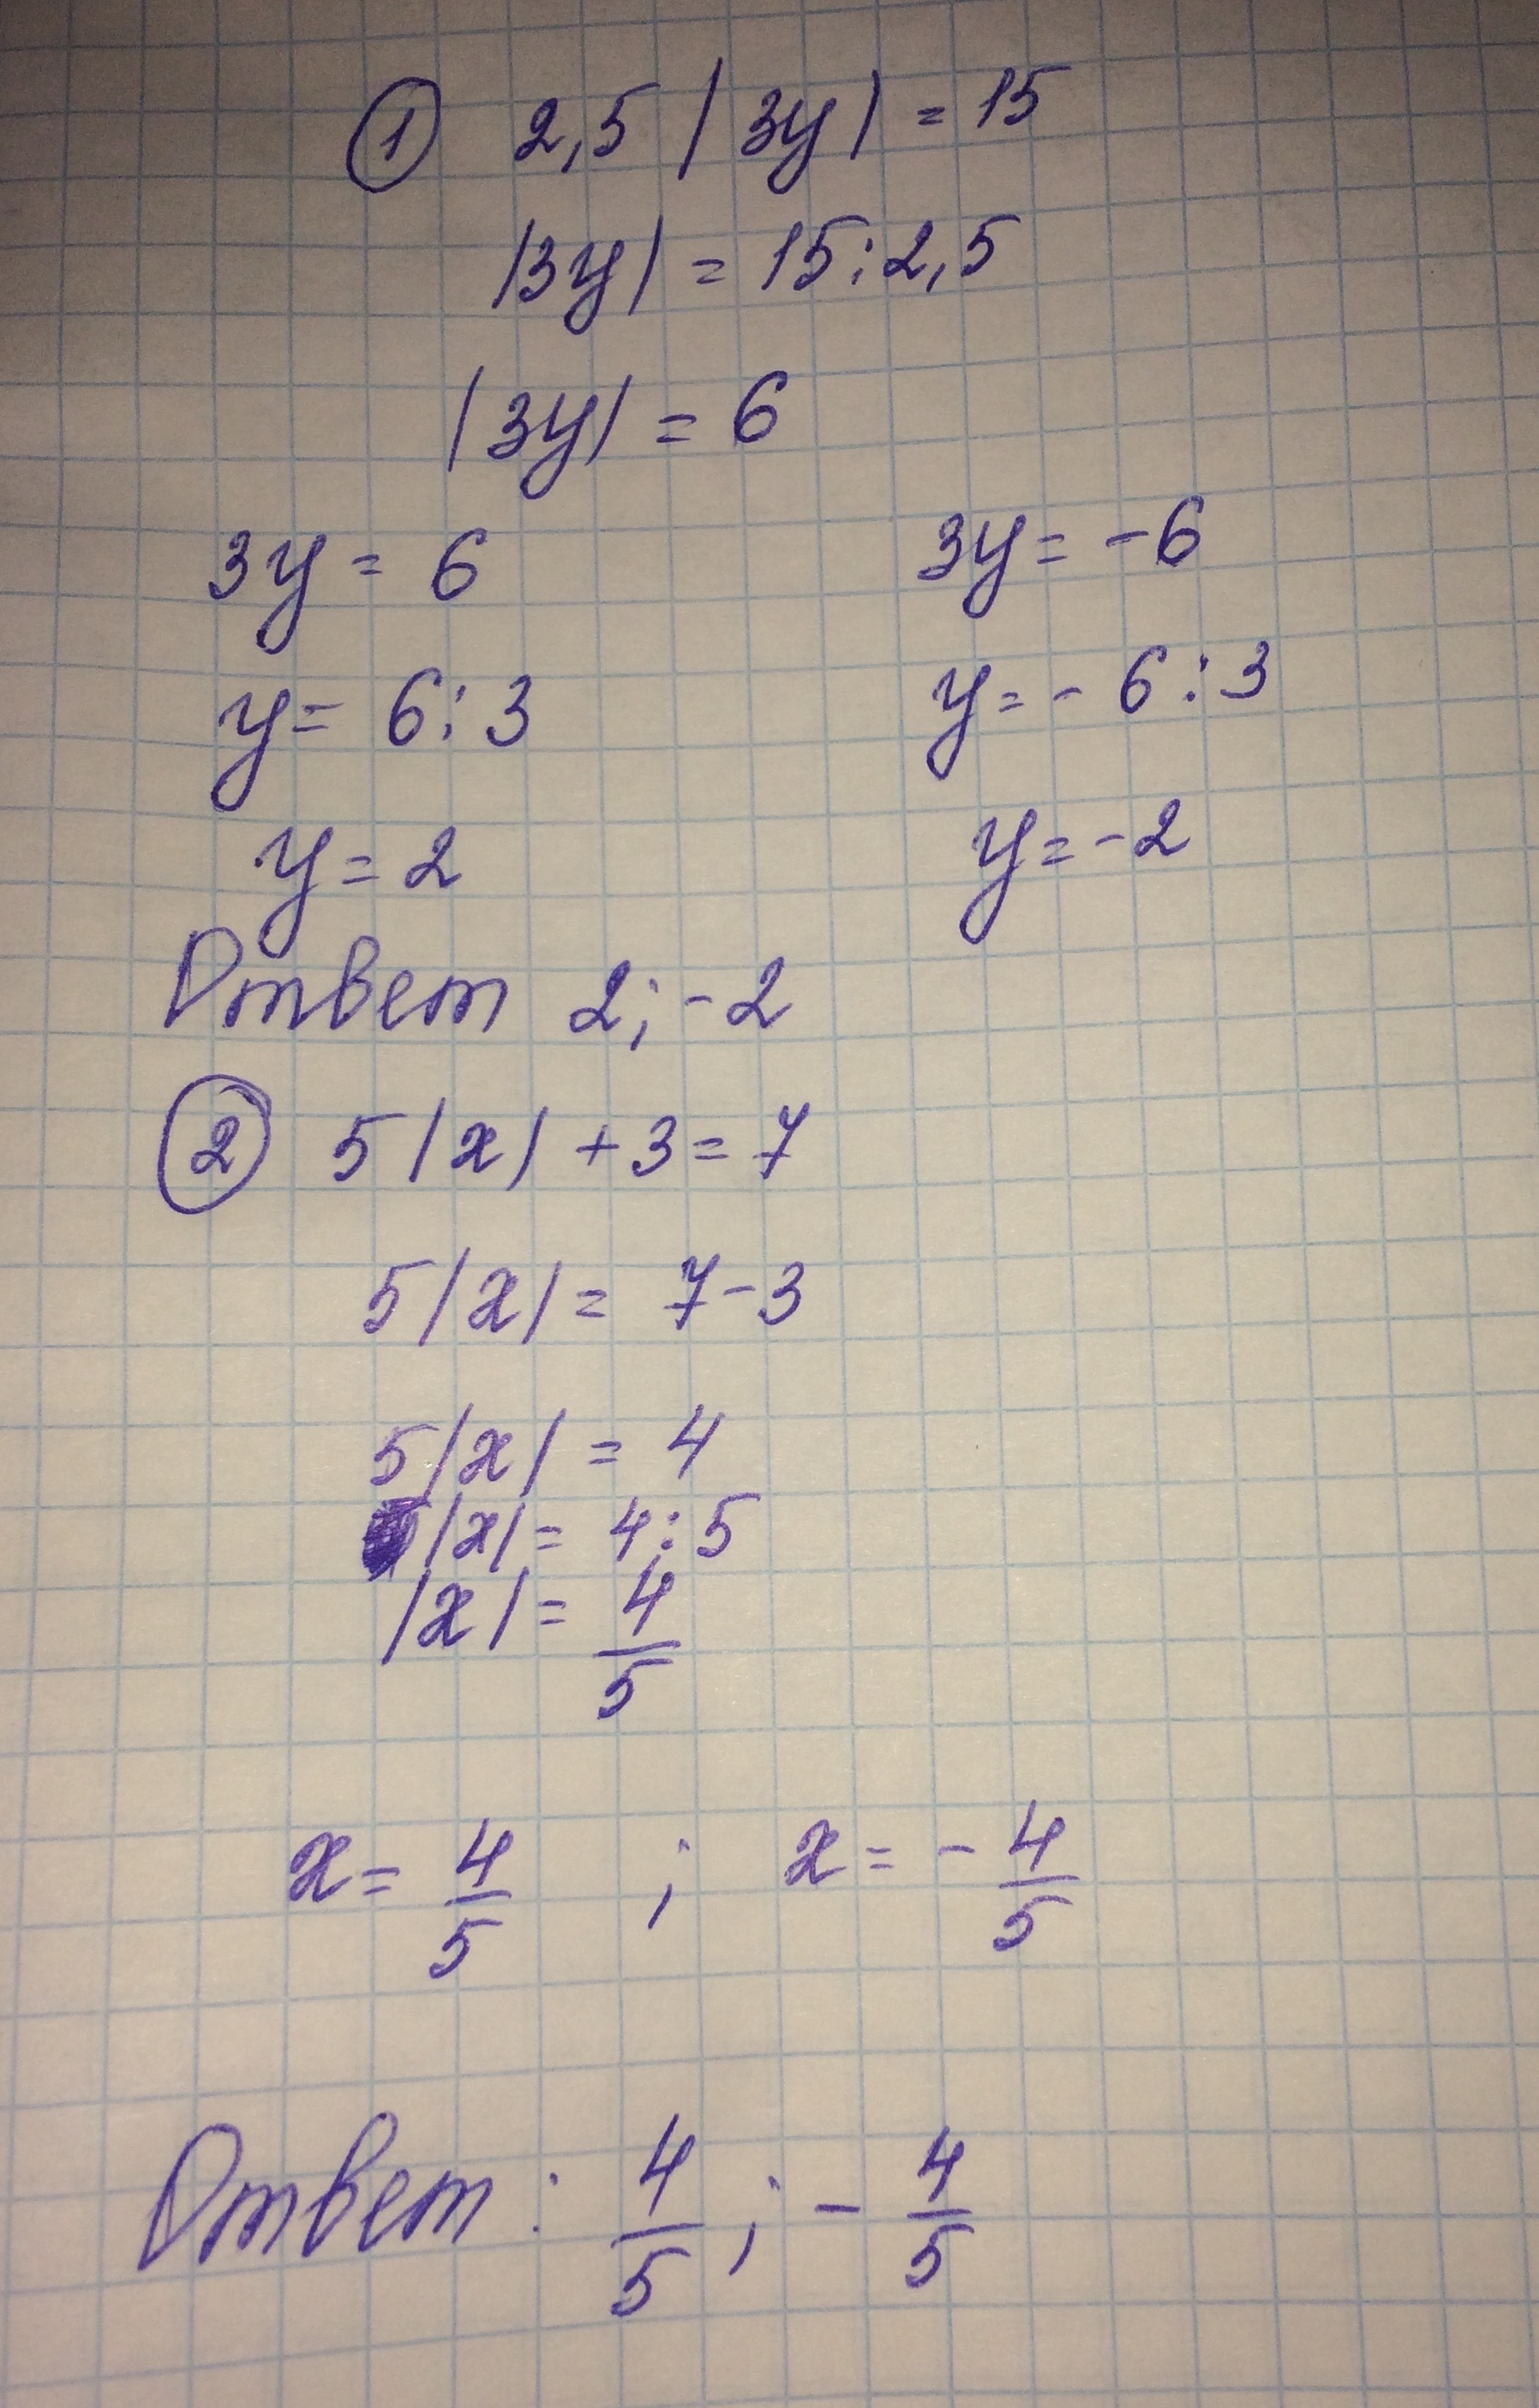 ① 2,5 |3y| = 15
|3y| = 15 : 2,5
|3y| = 6
3y = 6 3y = -6
y = 6 : 3 y = - 6 : 3
y = 2 y = -2
Ответ 2; -2
② 5 |x| + 3 = 7
5 |x| = 7 - 3
5 |x| = 4
|x| = 4 : 5
|x| = 4/5
x = 4/5 ; x = - 4/5
Ответ : 4/5 ; - 4/5